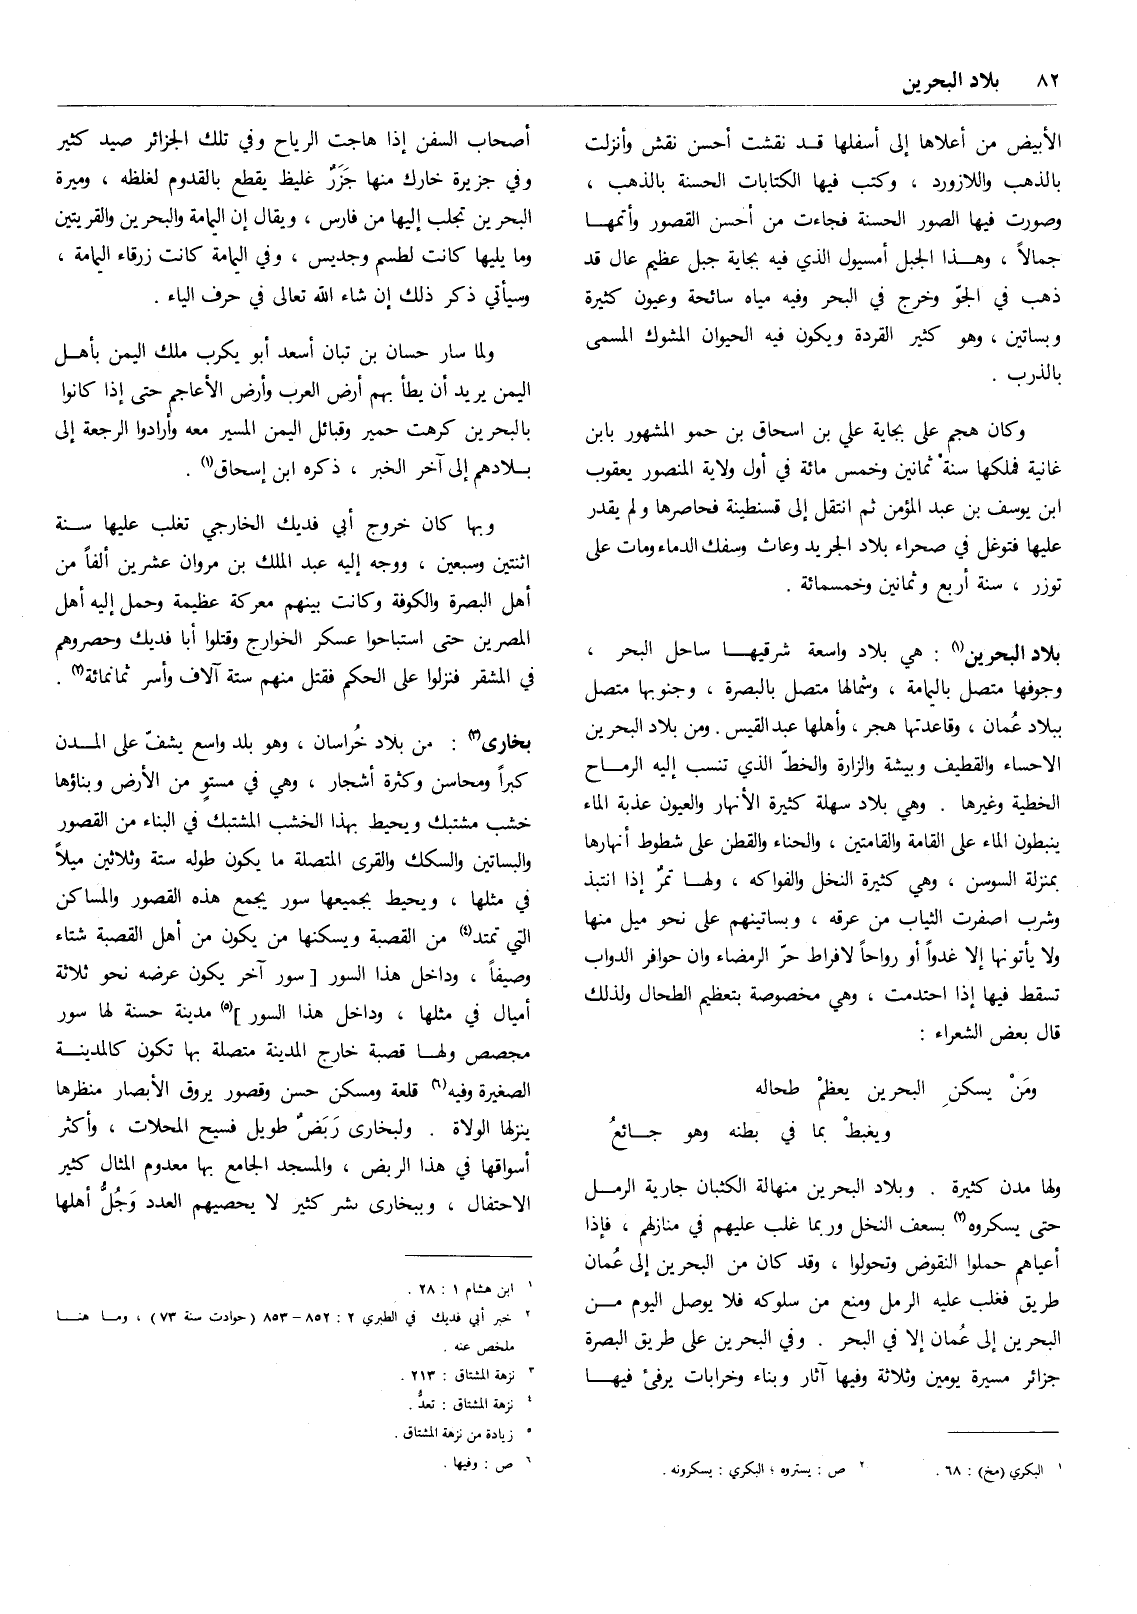 ٨٢ بلاد البحرين
الأبيض من أعلاها إلى أسفلها قد نقشت أحسن نقش وأنزلت
بالذهب واللازورد ، وكتب فيها الكتابات الحسنة بالذهب ،
وصورت فيها الصور الحسنة فجاءت من أحسن القصور وأتمها
جمالاً ، وهذا الجبل أمسيول الذي فيه بجاية جبل عظيم عال قد
ذهب في الجوّ وخرج في البحر وفيه مياه سائحة وعيون كثيرة
وبساتين ، وهو كثير القردة ويكون فيه الحيوان المشوك المسمى
بالذرب .
وكان هجم على بجاية علي بن اسحاق بن حمو المشهور بابن
غانية فملكها سنة ثمانين وخمس مائة في أول ولاية المنصور يعقوب
ابن يوسف بن عبد المؤمن ثم انتقل إلى قسنطينة فحاصرها ولم يقدر
عليها فتوغل في صحراء بلاد الجريد وعاث وسفك الدماء ومات على
توزر ، سنة أربع وثمانين وخمسمائة .
بلاد البحرين(١) : هي بلاد واسعة شرقيها ساحل البحر ،
وجوفها متصل باليمامة ، وشمالها متصل بالبصرة ، وجنوبها متصل
ببلاد عُمان ، وقاعدتها هجر ، وأهلها عبد القيس. ومن بلاد البحرين
الاحساء والقطيف وبيشة والزارة والخطّ الذي تنسب إليه الرماح
الخطية وغيرها . وهي بلاد سهلة كثيرة الأنهار والعيون عذبة الماء
ينبطون الماء على القامة والقامتين ، والحناء والقطن على شطوط أنهارها
بمنزلة السوسن ، وهي كثيرة النخل والفواكه ، ولها تمرٌ إذا انتبذ
وشرب اصفرت الثياب من عرقه ، وبساتينهم على نحو ميل منها
ولا يأتونها إلا غدواً أو رواحاً لافراط حرّ الرمضاء وان حوافر الدواب
تسقط فيها إذا احتدمت ، وهي مخصوصة بتعظيم الطحال ولذلك
قال بعض الشعراء :
ومَنْ يسكنِ البحرين يعظمْ طحاله
ويغبطْ بما في بطنه وهو جائعُ
ولها مدن كثيرة . وبلاد البحرين منهالة الكثبان جارية الرمل
حتى يسكروه(٢) بسعف النخل وربما غلب عليهم في منازلهم ، فإذا
أعياهم حملوا النقوض وتحولوا ، وقد كان من البحرين إلى عُمان
طريق فغلب عليه الرمل ومنع من سلوكه فلا يوصل اليوم من
البحرين إلى عُمان إلا في البحر . وفي البحرين على طريق البصرة
جزائر مسيرة يومين وثلاثة وفيها آثار وبناء وخرابات يرفئ فيها
١ البكري (مخ) : ٦٨ . ٢ ص : يستروه ؛ البكري : يسكرونه .
أصحاب السفن إذا هاجت الرياح وفي تلك الجزائر صيد كثير
وفي جزيرة خارك منها جَزَرٌ غليظ يقطع بالقدوم لغلظه ، وميرة
البحرين تجلب إليها من فارس ، ويقال إن اليمامة والبحرين والقريتين
وما يليها كانت لطسم وجديس ، وفي اليمامة كانت زرقاء اليمامة ،
وسيأتي ذكر ذلك إن شاء الله تعالى في حرف الياء .
ولما سار حسان بن تبان أسعد أبو يكرب ملك اليمن بأهل
اليمن يريد أن يطأ بهم أرض العرب وأرض الأعاجم حتى إذا كانوا
بالبحرين كرهت حمير وقبائل اليمن المسير معه وأرادوا الرجعة إلى
بلادهم إلى آخر الخبر ، ذكره ابن إسحاق(١) .
وبها كان خروج أبي فديك الخارجي تغلب عليها سنة
اثنتين وسبعين ، ووجه إليه عبد الملك بن مروان عشرين ألفاً من
أهل البصرة والكوفة وكانت بينهم معركة عظيمة وحمل إليه أهل
المصرين حتى استباحوا عسكر الخوارج وقتلوا أبا فديك وحصروهم
في المشقر فنزلوا على الحكم فقتل منهم ستة آلاف وأسر ثمانمائة(٢) .
بخارى(٣) : من بلاد خُراسان ، وهو بلد واسع يشفّ على المدن
كبراً ومحاسن وكثرة أشجار ، وهي في مستوٍ من الأرض وبناؤها
خشب مشتبك ويحيط بهذا الخشب المشتبك في البناء من القصور
والبساتين والسكك والقرى المتصلة ما يكون طوله ستة وثلاثين ميلاً
في مثلها ، ويحيط بجميعها سور يجمع هذه القصور والمساكن
التي تمتد(٤) من القصبة ويسكنها من يكون من أهل القصبة شتاء
وصيفاً ، وداخل هذا السور [ سور آخر يكون عرضه نحو ثلاثة
أميال في مثلها ، وداخل هذا السور ](٥) مدينة حسنة لها سور
مجصص ولها قصبة خارج المدينة متصلة بها تكون كالمدينة
الصغيرة وفيه(٦) قلعة ومسكن حسن وقصور يروق الأبصار منظرها
ينزلها الولاة . ولبخارى رَبَضٌ طويل فسيح المحلات ، وأكثر
أسواقها في هذا الربض ، والمسجد الجامع بها معدوم المثال كثير
الاحتفال ، وببخارى بشر كثير لا يحصيهم العدد وَجُلُّ أهلها
١ ابن هشام ١ : ٢٨ .
٢ خبر أبي فديك في الطبري ٢ : ٨٥٢ – ٨٥٣ (حوادث سنة ٧٣) ، وما هنا
ملخص عنه .
٣ نزهة المشتاق : ٢١٣ .
٤ نزهة المشتاق : تعدُّ .
٥ زيادة من نزهة المشتاق .
٦ ص : وفيها .